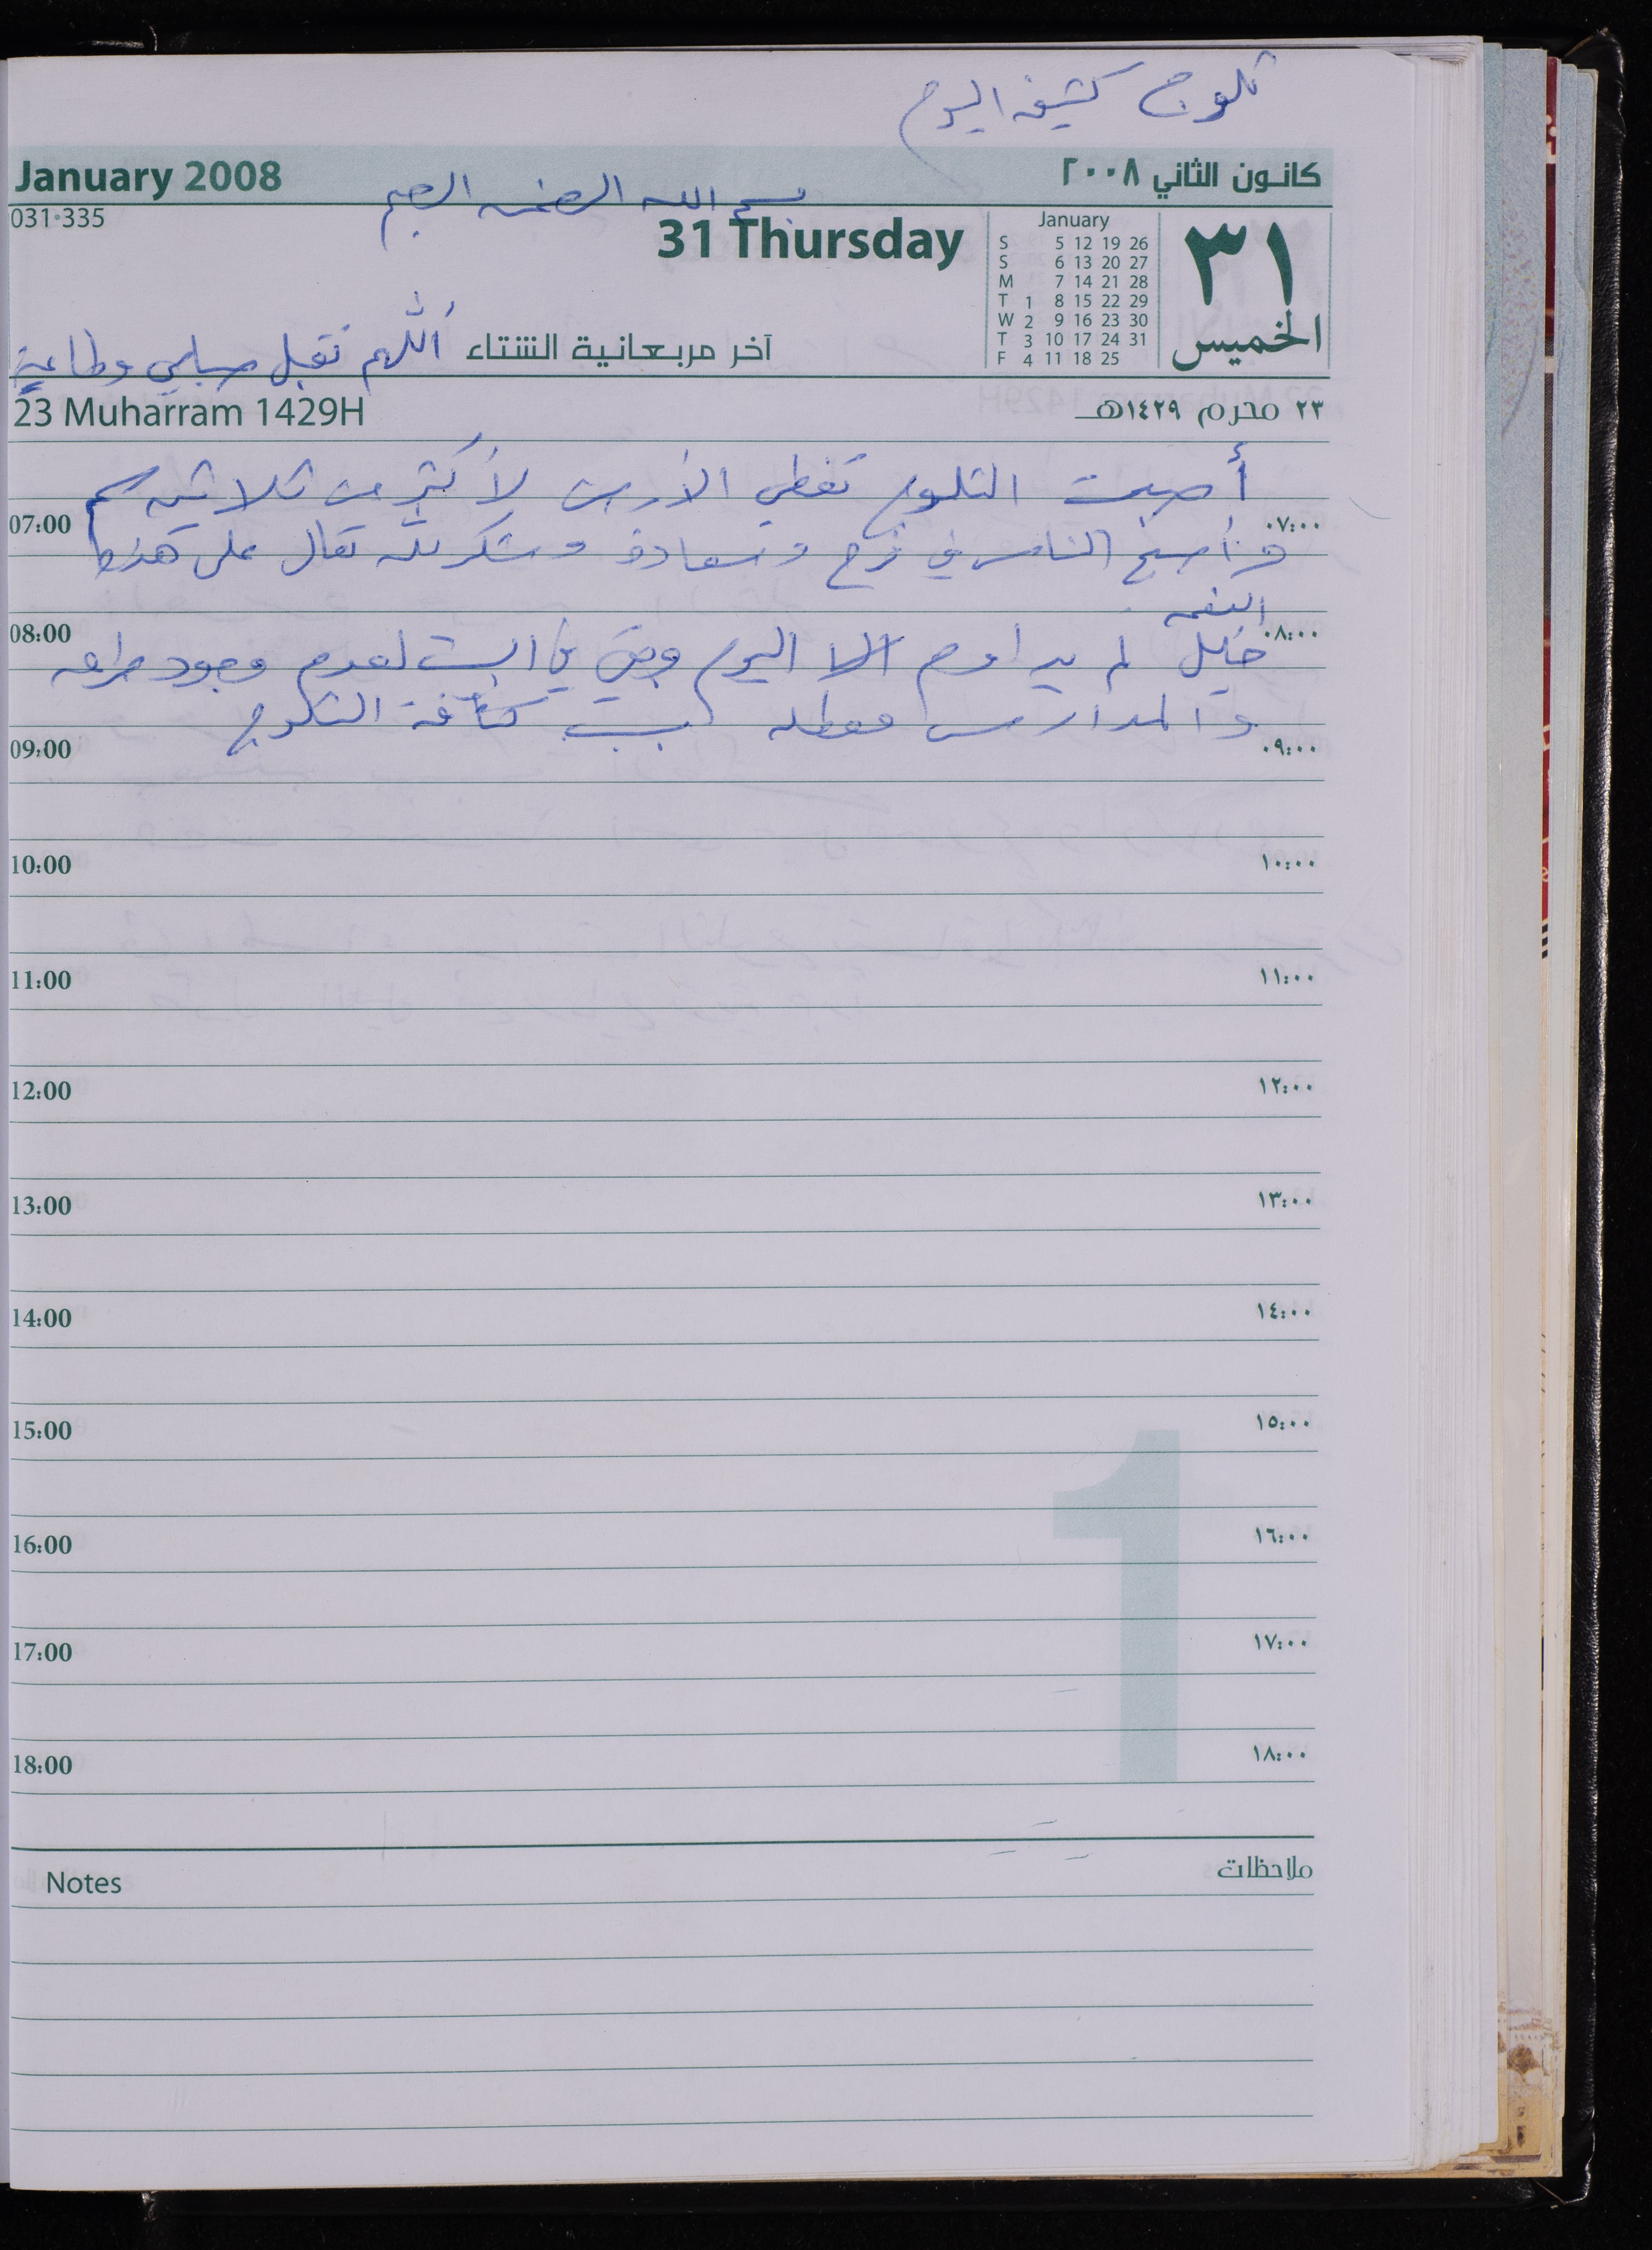 ثلوج كثيفه اليوم
January 2008
كانون الثاني ٢٠٠٨
بسم الله الرحمن الرحيم
031·335
31 Thursday
January
S 5 12 19 26
S 6 13 20 27
M 7 14 21 28
T 1 8 15 22 29
W 2 9 16 23 30
T 3 10 17 24 31
F 4 11 18 25
٣١
الخميس
آخر مربعانية الشتاء
اللهم تقبل صيامي وطاعتي
23 Muharram 1429H
٢٣ محرم ١٤٢٩هـ
أصبحت الثلوج تغطي الأرض لأكثر من ثلاثين سم
وأصبح الناس في فرح وسعادة وشكر لله تعالى على هذه
النعمه
خليل لم يداوم اليوم وبقي في البيت لعدم وجود
والمدارس معطله بسبب كثافة الثلوج
07:00 ٠٧:٠٠
08:00 ٠٨:٠٠
09:00 ٠٩:٠٠
10:00 ١٠:٠٠
11:00 ١١:٠٠
12:00 ١٢:٠٠
13:00 ١٣:٠٠
14:00 ١٤:٠٠
15:00 ١٥:٠٠
16:00 ١٦:٠٠
17:00 ١٧:٠٠
18:00 ١٨:٠٠
1
Notes
ملاحظات